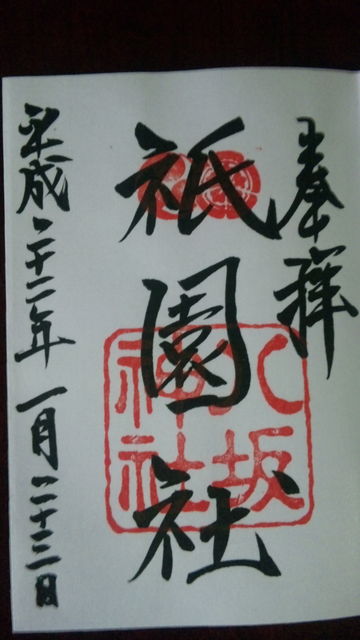 奉拝
祇園社
八坂
神社
平成二十二年一月二十三日